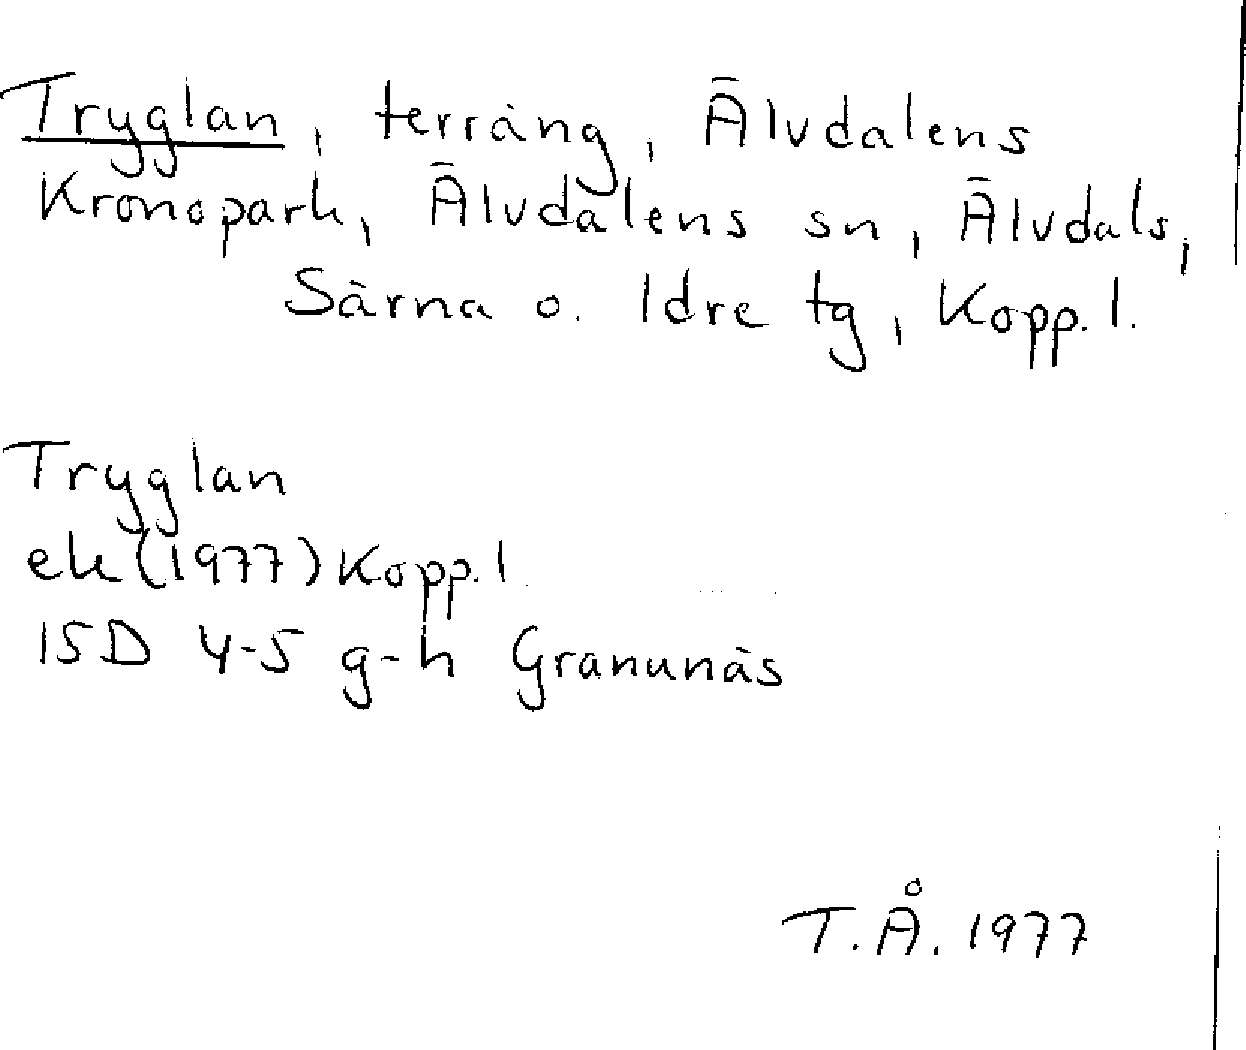 Tryglan, terräng, Älvdalens
Kronopark, Älvdalens sn, Älvdals,
Särna o. Idre tg, Kopp. l.
Tryglan
ek (1977) Kopp. l.
15D 4-5 g-h Granunäs
T.Å. 1977